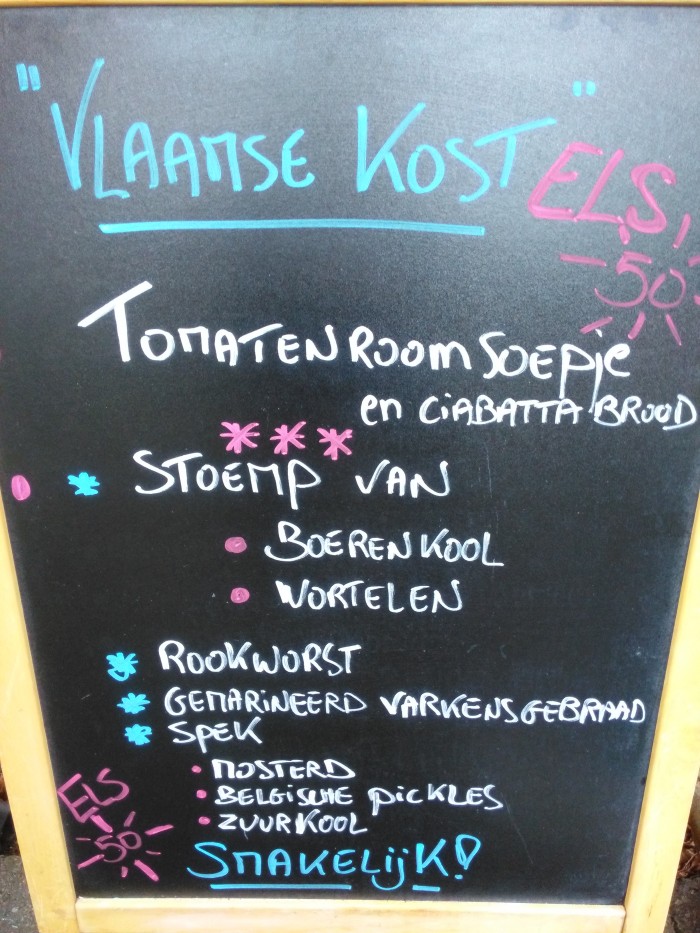 "VLAAMSE KOST"
ELS
50
TOMATENROOMSOEPJE
en CIABATTA BROOD
***
* STOEMP VAN
• BOERENKOOL
• WORTELEN
* ROOKWORST
* GEMARINEERD VARKENSGEBRAAD
* SPEK
• MOSTERD
• BELGISCHE PICKLES
• ZUURKOOL
ELS
50
SMAKELIJK!